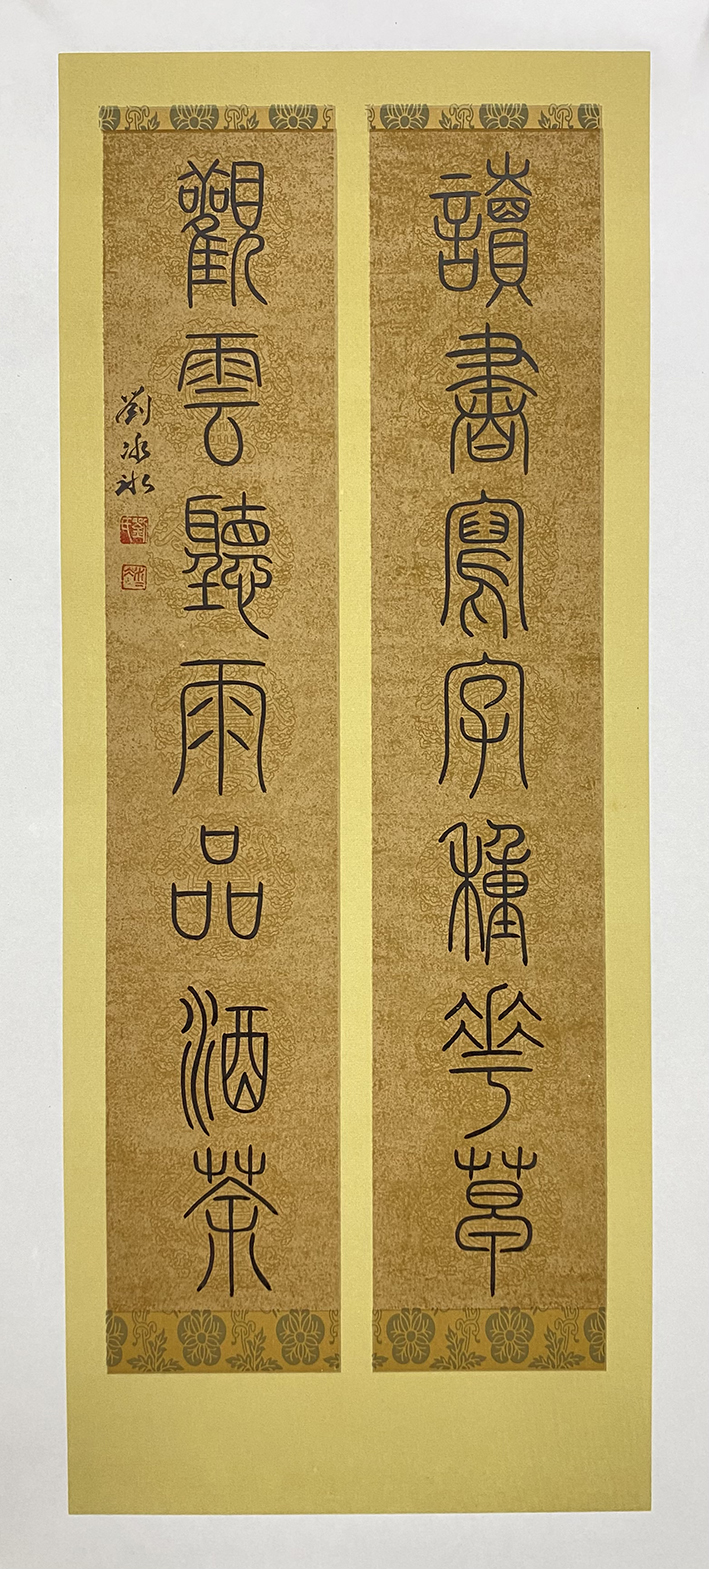 讀書寫字種花草
觀雲聽雨品酒茶
劉冰冰